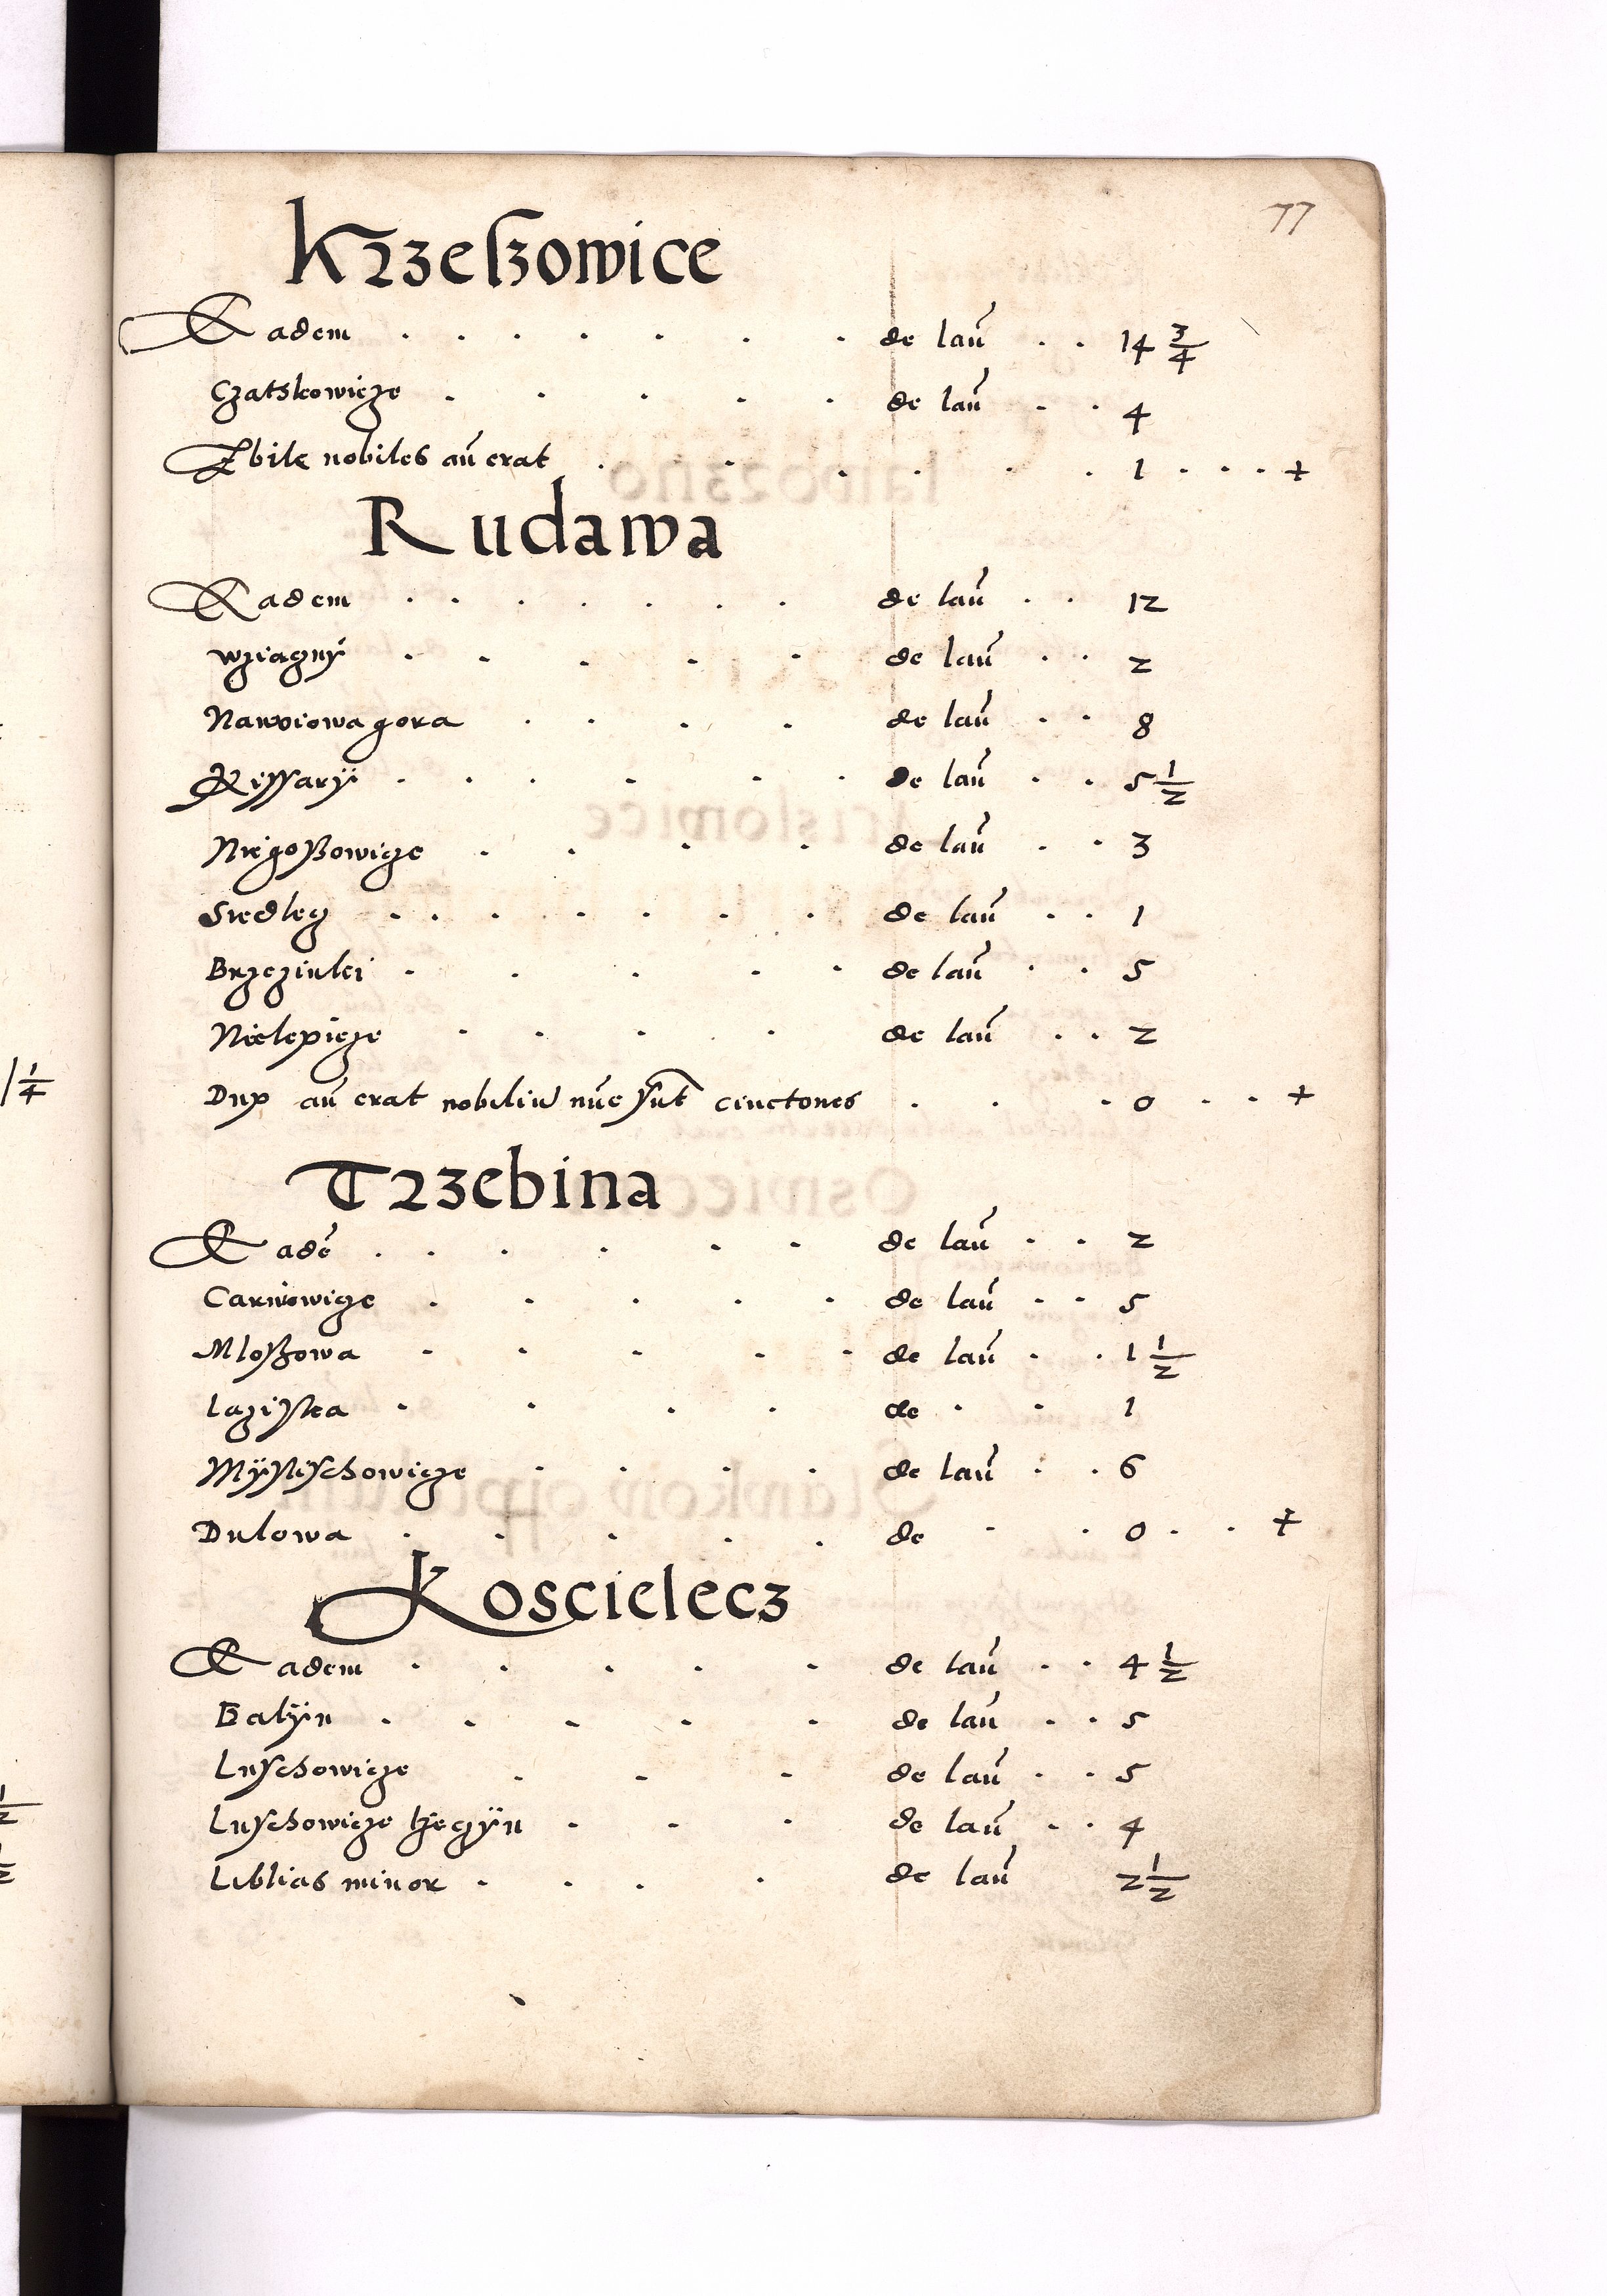 77
Krzeszowice
Eadem . . . . . . . de lañ . . 14 3/4
Czatskowicze . . . . . de lañ . . 4
Zbik nobiles añ erat . . . . . . 1 . . . . +
Rudawa
Eadem . . . . . . . de lañ . . 12
Wziagnÿ . . . . . de lañ . . 2
Nawoiowa gora . . . . de lañ . . 8
Pissarÿ . . . . . . de lañ . . 5 1/2
Niegoszowicze . . . . de lañ . . 3
Siedlcz . . . . . . . de lañ . . 1
Brzezinki . . . . . de lañ . . 5
Nielepicze . . . . de lañ . . 2
añ erat nobiliũ nũc sũt cmetones . . . 0 . . +
Trzebina
Eadē . . . . . . de lañ . . 2
Carniowicze . . . . . de lañ . . 5
Mloszowa . . . . . de lañ . . 1 1/2
Laziska . . . . de . . 1
Mÿslschowicze . . . . de lañ . . 6
Dulowa . . . . . de . . 0 . . +
Koscielecz
Eadem . . . . . de lañ . . 4 1/2
Balÿn . . . . . de lañ . . 5
Luschowicze . . . de lañ . . 5
Luschowicze . . . de lañ . . 4
Liblias minor . . . . de lañ 2 1/2
1/4